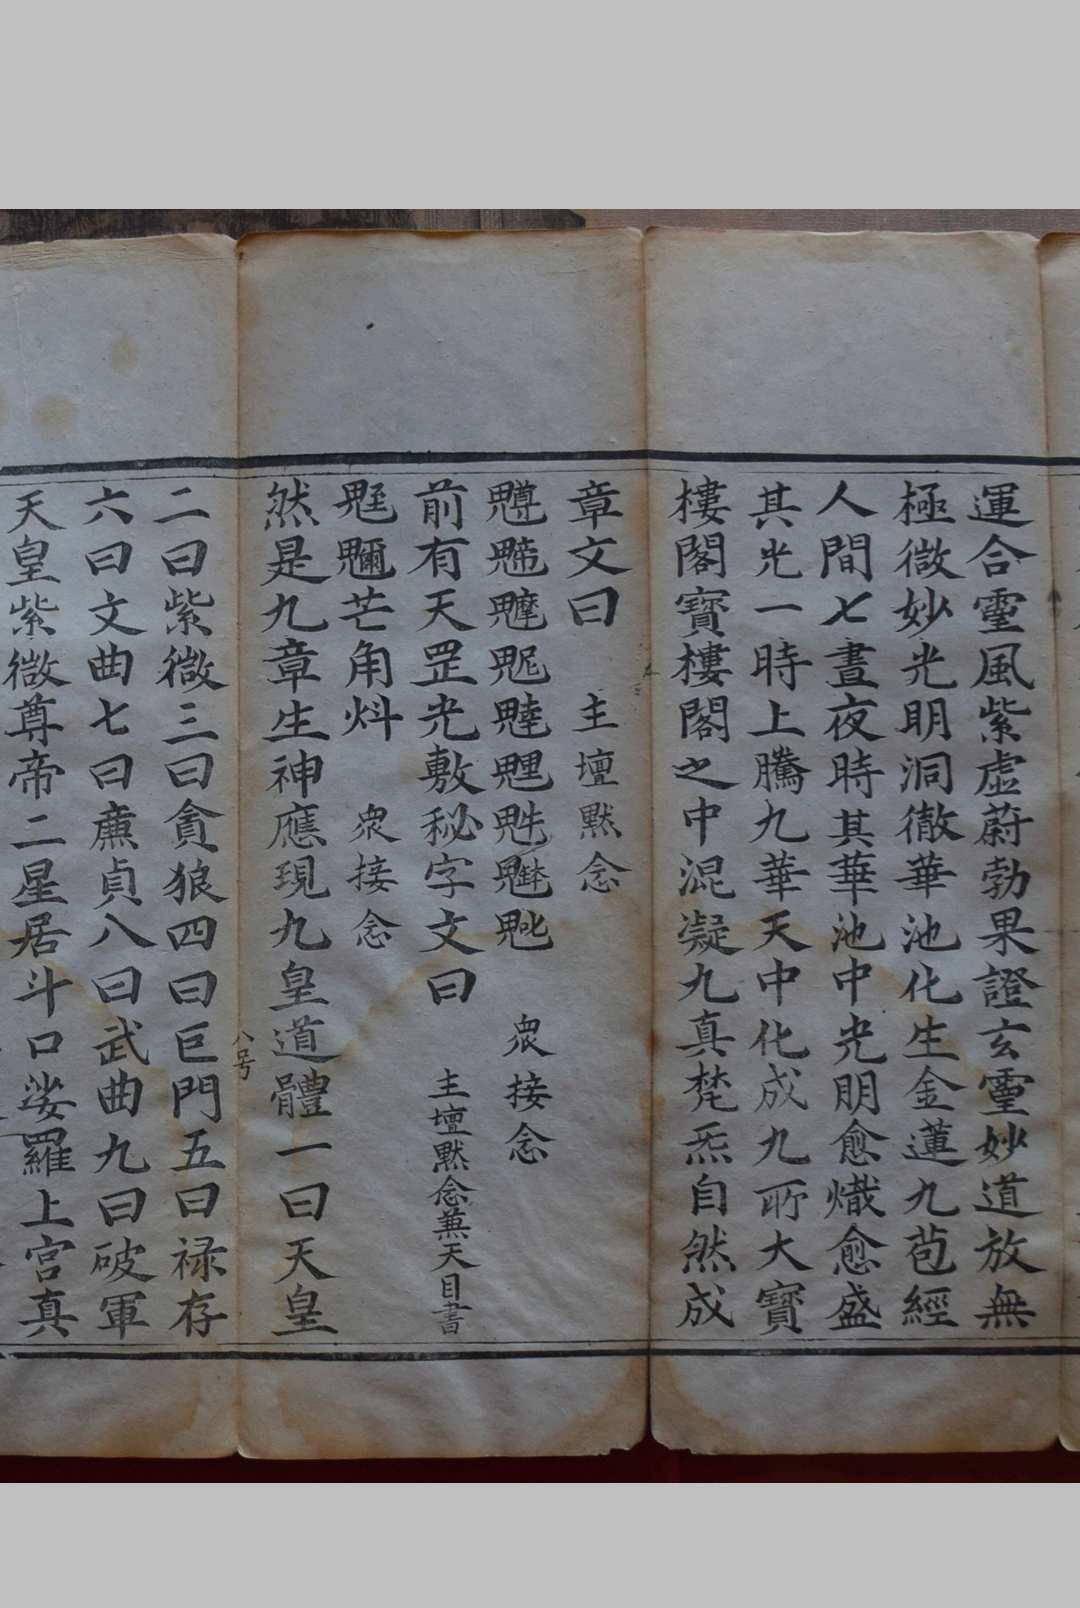 運合𩆜風紫虛蔚勃果證玄𩆜妙道放無
極微妙光明洞徹華池化生金蓮九苞經
人間七晝夜時其華池中光明愈熾愈盛
其光一時上騰九華天中化成九所大寶
樓閣寶樓閣之中混凝九真梵炁自然成
章文曰 主壇默念
眾接念
前有天罡光敷秘字文曰 主壇默念兼天目書
芒角炓 眾接念
然是九章生神應現九皇道體一曰天皇
二曰紫微三曰貪狼四曰巨門五曰祿存
六曰文曲七曰廉貞八曰武曲九曰破軍
天皇紫微尊帝二星居斗口娑羅上宮真
八号